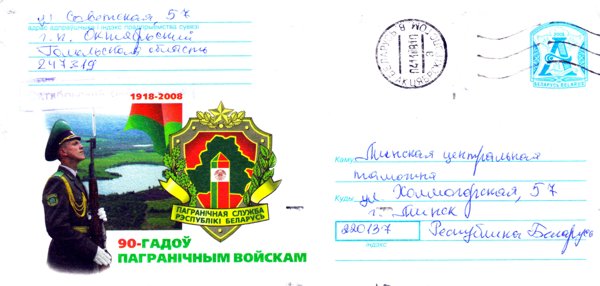 ул Советская, 57
адрас адпраўніка і індэкс прадпрыемства сувязі
г.п. Октябрьский
Гомельской область
247319
1918-2008
ПАГРАНІЧНАЯ СЛУЖБА
РЭСПУБЛІКІ БЕЛАРУСЬ
90-ГАДОЎ
ПАГРАНІЧНЫМ ВОЙСКАМ
БЕЛАРУСЬ
2008
А
БЕЛАРУСЬ BELARUS
Каму Минская центральная
таможня
Куды ул Холмогорская, 57
г. Минск
220137 Республика Беларусь
індэкс